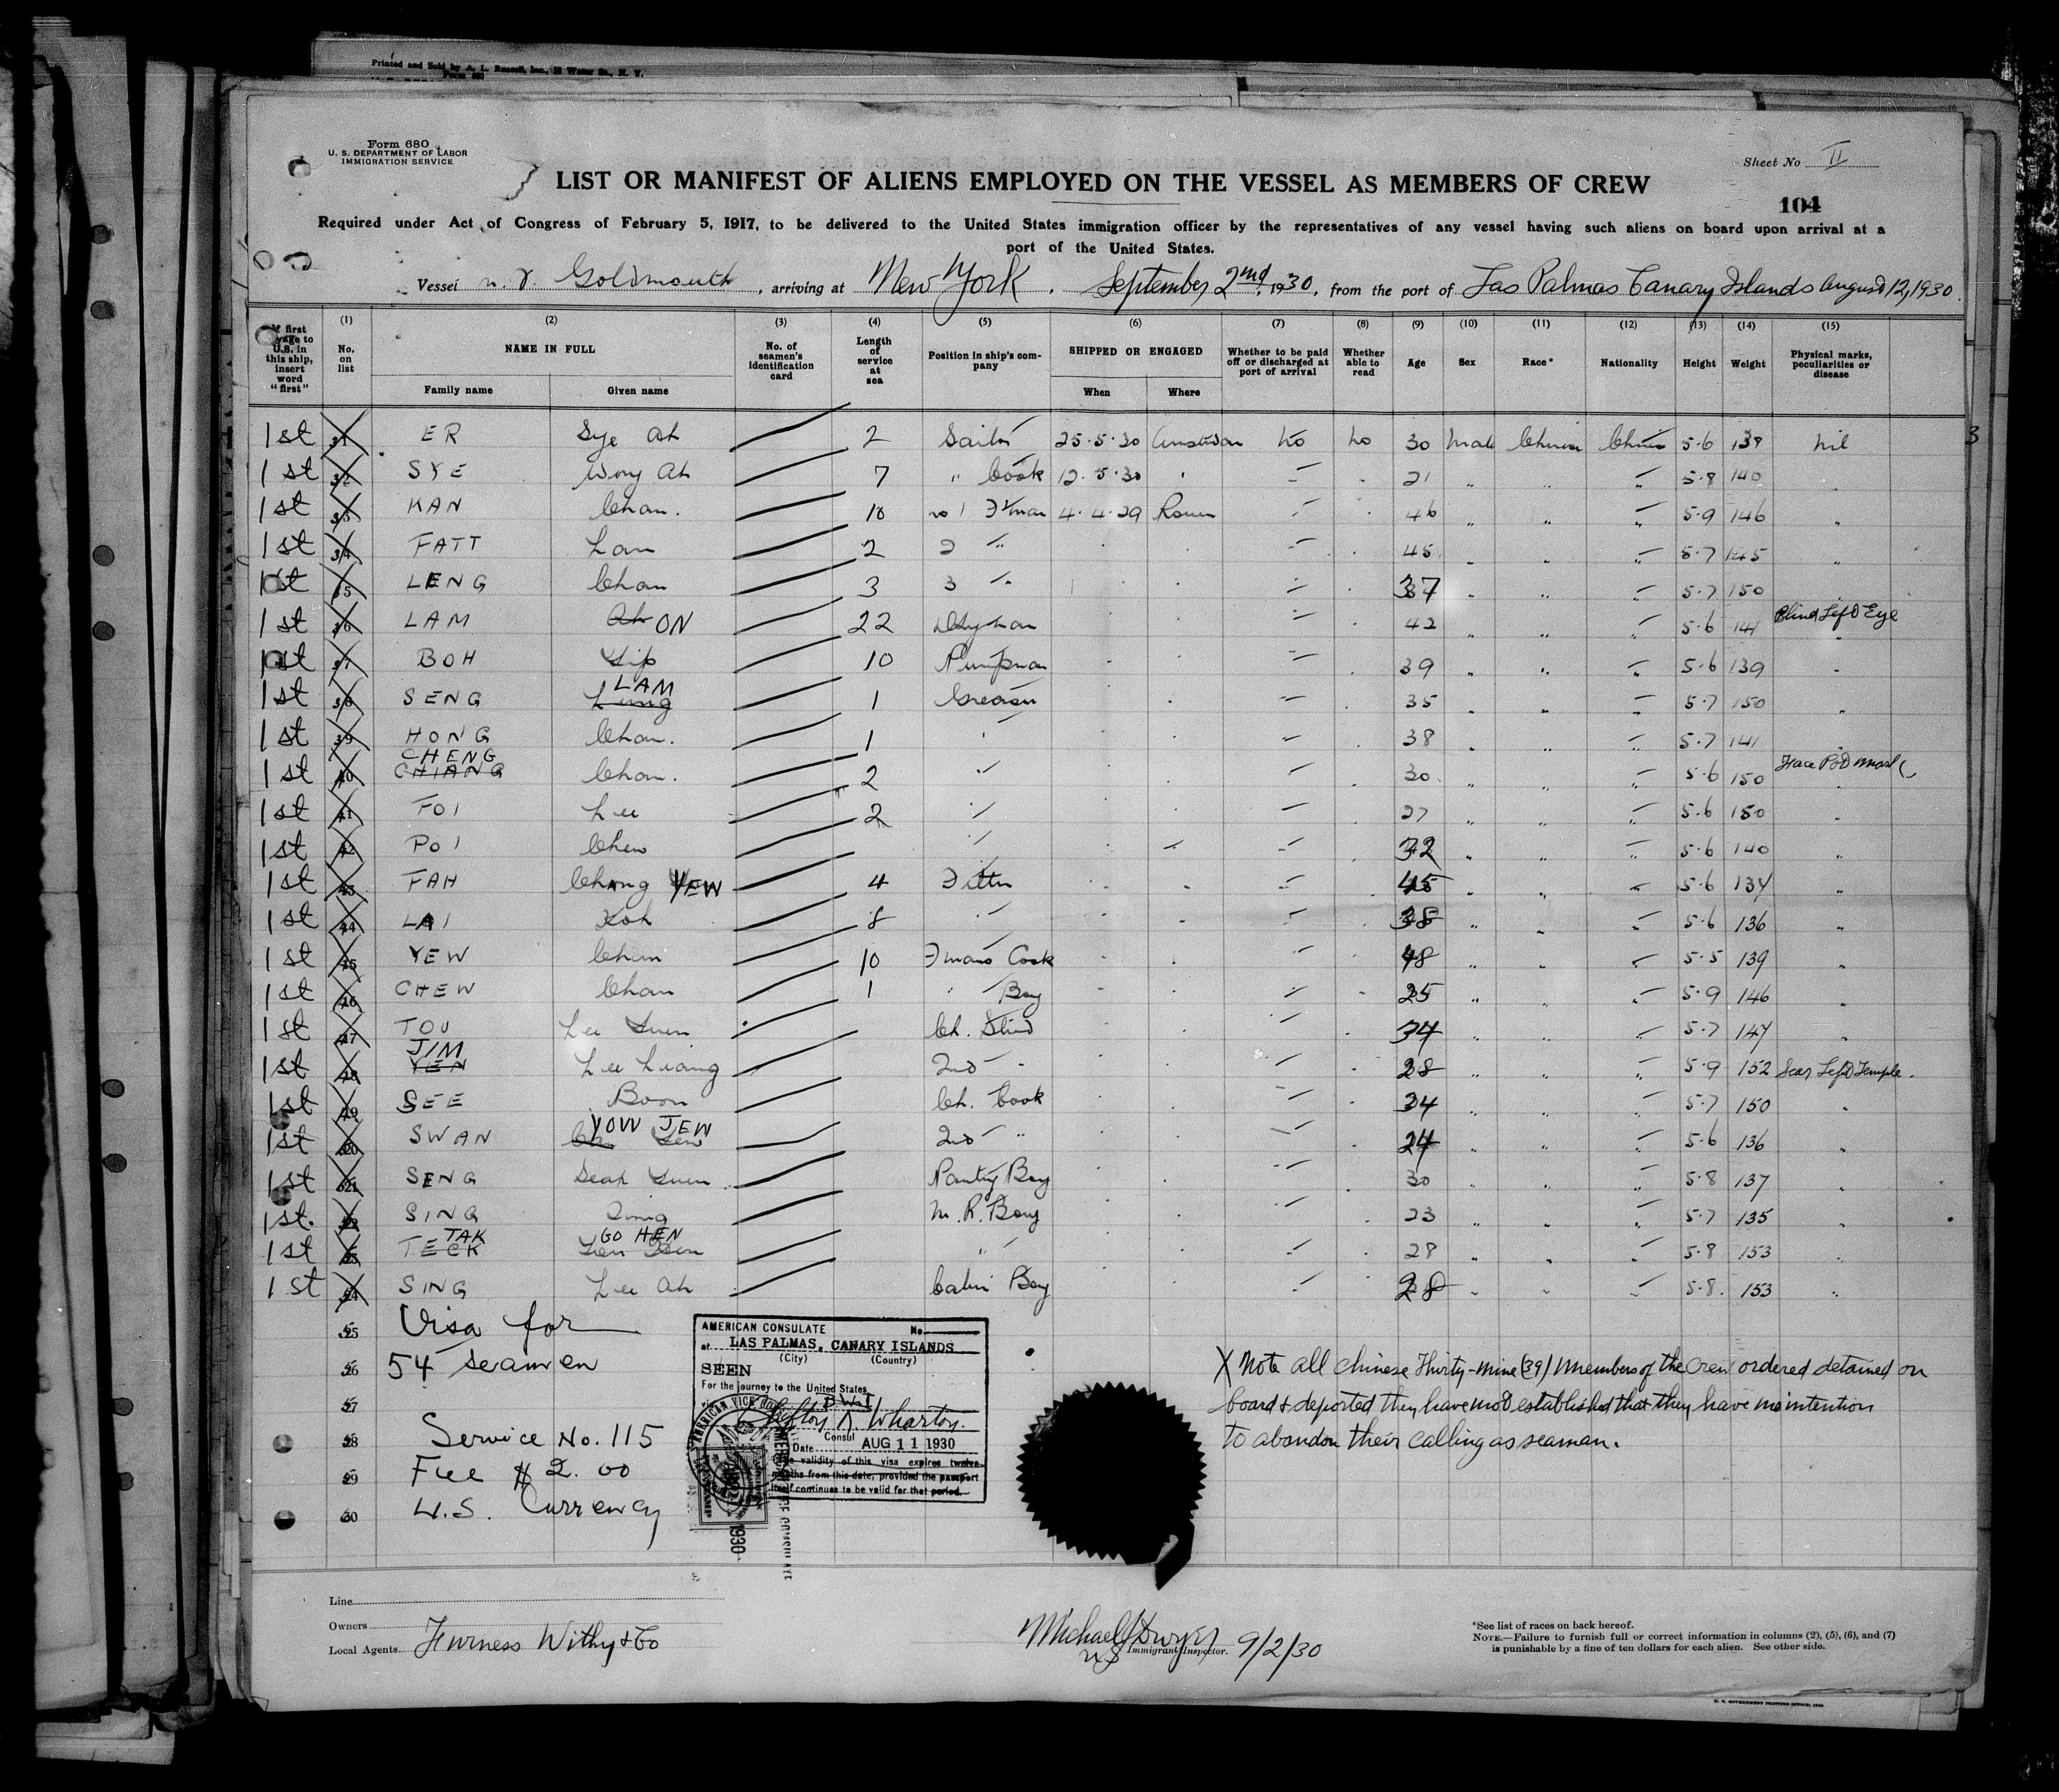 Printed and Sold by A. L. Russell, Inc., Water St., N. Y.
Form 680
U. S. DEPARTMENT OF LABOR
IMMIGRATION SERVICE
Sheet No II
LIST OR MANIFEST OF ALIENS EMPLOYED ON THE VESSEL AS MEMBERS OF CREW
104
Required under Act of Congress of February 5, 1917, to be delivered to the United States immigration officer by the representatives of any vessel having such aliens on board upon arrival at a
port of the United States.
Vessel Goldmouth, arriving at New York. September 2nd, 1930, from the port of Las Palmas Canary Islands August 12, 1930.
If first voyage to U.S. in this ship, insert word "first" (1) No. on list (2) NAME IN FULL Family name Given name (3) No. of seamen's identification card (4) Length of service at sea (5) Position in ship's company (6) SHIPPED OR ENGAGED When Where (7) Whether to be paid off or discharged at port of arrival (8) Whether able to read (9) Age (10) Sex (11) Race* (12) Nationality (13) Height (14) Weight (15) Physical marks, peculiarities or disease
1st ER Sye Ah 2 Sailor 25.5.30 Amsterdam No No 30 Male Chinese Chinese 5.6 139 nil 3
1st SYE Wong Ah 7 " Cook 12.5.30 21 " " " 5.8 140
1st KAN Chan. 10 no 1 F'man 4.4.29 Rouen 46 " " " 5.9 146
1st 34 FATT Lam 2 2 " 45 " " " 5.7 145
1st 35 LENG Chan 3 3 " 37 " " " 5.7 150
1st 36 LAM Ah ON 22 42 " " " 5.6 141 Blind Left Eye
1st 37 BOH Yip 10 Pumpman 39 " " " 5.6 139
1st 38 SENG Lung LAM 1 Greaser 35 " " " 5.7 150
1st 39 HONG Chan. 1 " 38 " " " 5.7 141
1st 40 CHIANG CHENG Chan. 2 " 30 " " " 5.6 150 Face Pod Mark
1st 41 FOI Lee 2 " 27 " " " 5.6 150
1st 42 POI Chew " 32 " " " 5.6 140
1st 43 FAH Chang YEW 4 Fitter 45 " " " 5.6 134
1st 44 LAI Koh 8 " 38 " " " 5.6 136
1st 45 YEW Chim 10 F'mans Cook 48 " " " 5.5 139
1st 46 CHEW Chan 1 " Boy 25 " " " 5.9 146
1st 47 TOU Lee Suen Ch. Stwd 34 " " " 5.7 147
1st 48 YEN JIM Lee Liang 2nd " 28 " " " 5.9 152 Scar Left Temple.
1st 49 SEE Boon Ch. Cook 34 " " " 5.7 150
1st SWAN YOW JEW 2nd " 24 " " " 5.6 136
1st SENG Seah Suen Pantry Boy 30 " " " 5.8 137
1st. SING M. R. Boy 23 " " " 5.7 135
1st TECK TAK GO HEN " 28 " " " 5.8 153
1st SING Lee Ah Cabin Boy 28 " " " 5.8. 153
Visa for
54 seamen
Service No. 115
Fee $ 2.00
U.S. Currency
AMERICAN CONSULATE No.
at LAS PALMAS, CANARY ISLANDS
(City) (Country)
SEEN
For the journey to the United States
Clifton R. Wharton.
Consul
Date AUG 11 1930
The validity of this visa expires twelve
months from this date, provided the passport
itself continues to be valid for that period.
AMERICAN VICE CONSULATE
1930
X Note all Chinese Thirty-nine (39) members of the crew ordered detained on
board & deported they have not established that they have no intention
to abandon their calling as seaman.
Line
Owners
Local Agents Furness Withy & Co
Michael J Dwyer 9/2/30
US Immigrant Inspector.
*See list of races on back hereof.
NOTE.—Failure to furnish full or correct information in columns (2), (5), (6), and (7)
is punishable by a fine of ten dollars for each alien. See other side.